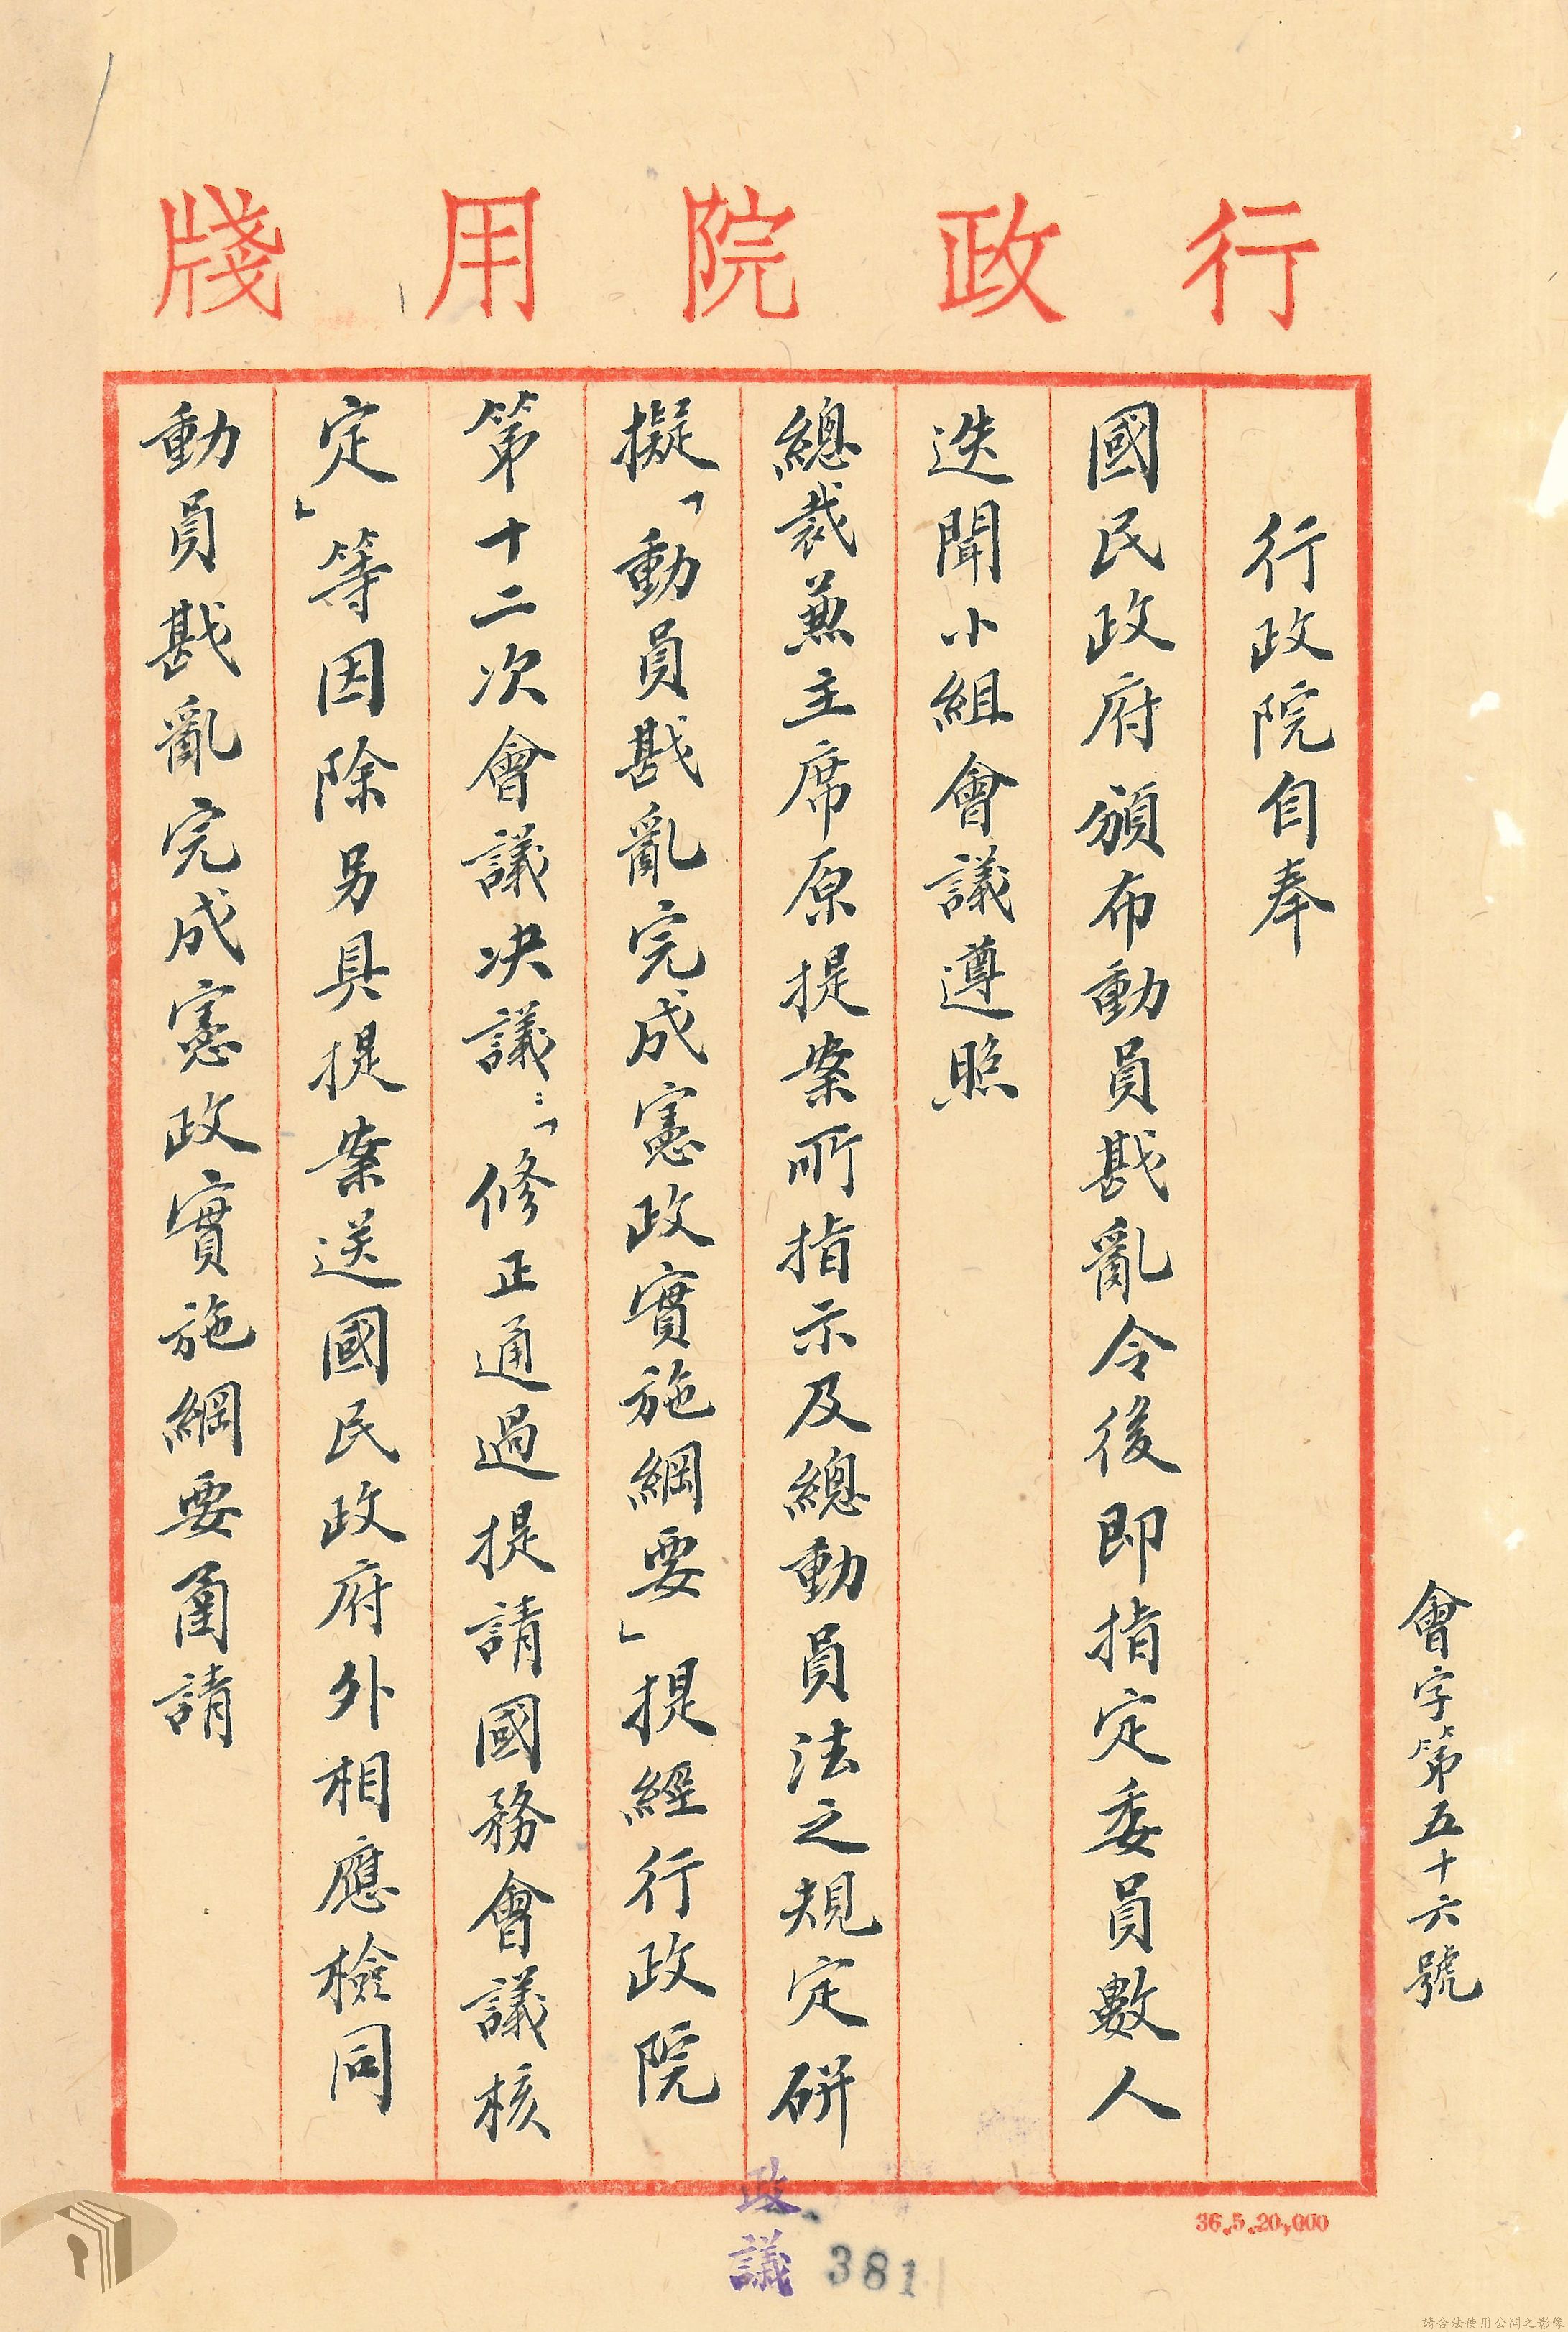 行政院用牋
會字第五十六號
行政院自奉
國民政府頒布動員戡亂令後即指定委員數人
迭開小組會議遵照
總裁兼主席原提案所指示及總動員法之規定研
擬「動員戡亂完成憲政實施綱要」提經行政院
第十二次會議決議：「修正通過提請國務會議核
定」等因除另具提案送國民政府外相應檢同
動員戡亂完成憲政實施綱要函請
36.5.20,000
政
議 381
請合法使用公開之影像